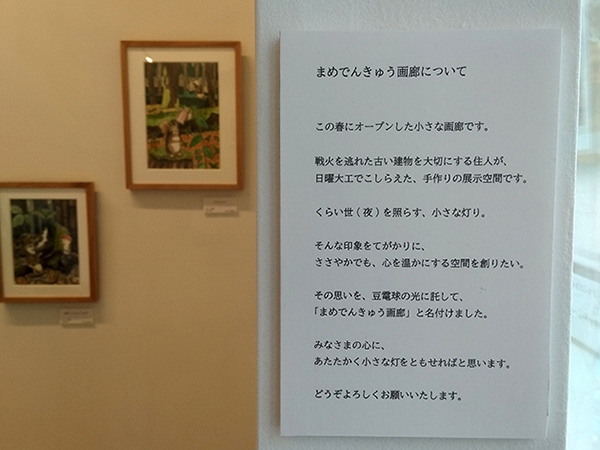 まめでんきゅう画廊について
この春にオープンした小さな画廊です。
戦火を逃れた古い建物を大切にする住人が、
日曜大工でこしらえた、手作りの展示空間です。
くらい世(夜)を照らす、小さな灯り。
そんな印象をてがかりに、
ささやかでも、心を温かにする空間を創りたい。
その思いを、豆電球の光に託して、
「まめでんきゅう画廊」と名付けました。
みなさまの心に、
あたたかく小さな灯をともせればと思います。
どうぞよろしくお願いいたします。